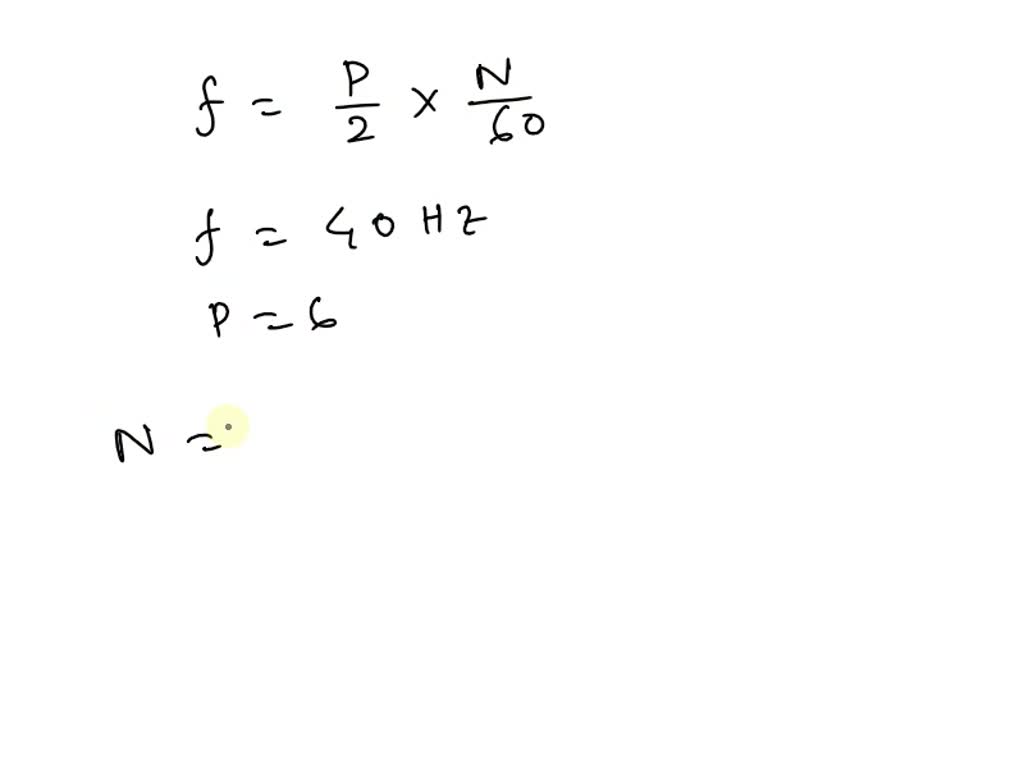 f = P/2 × N/60
f = 40 Hz
P = 6
N =